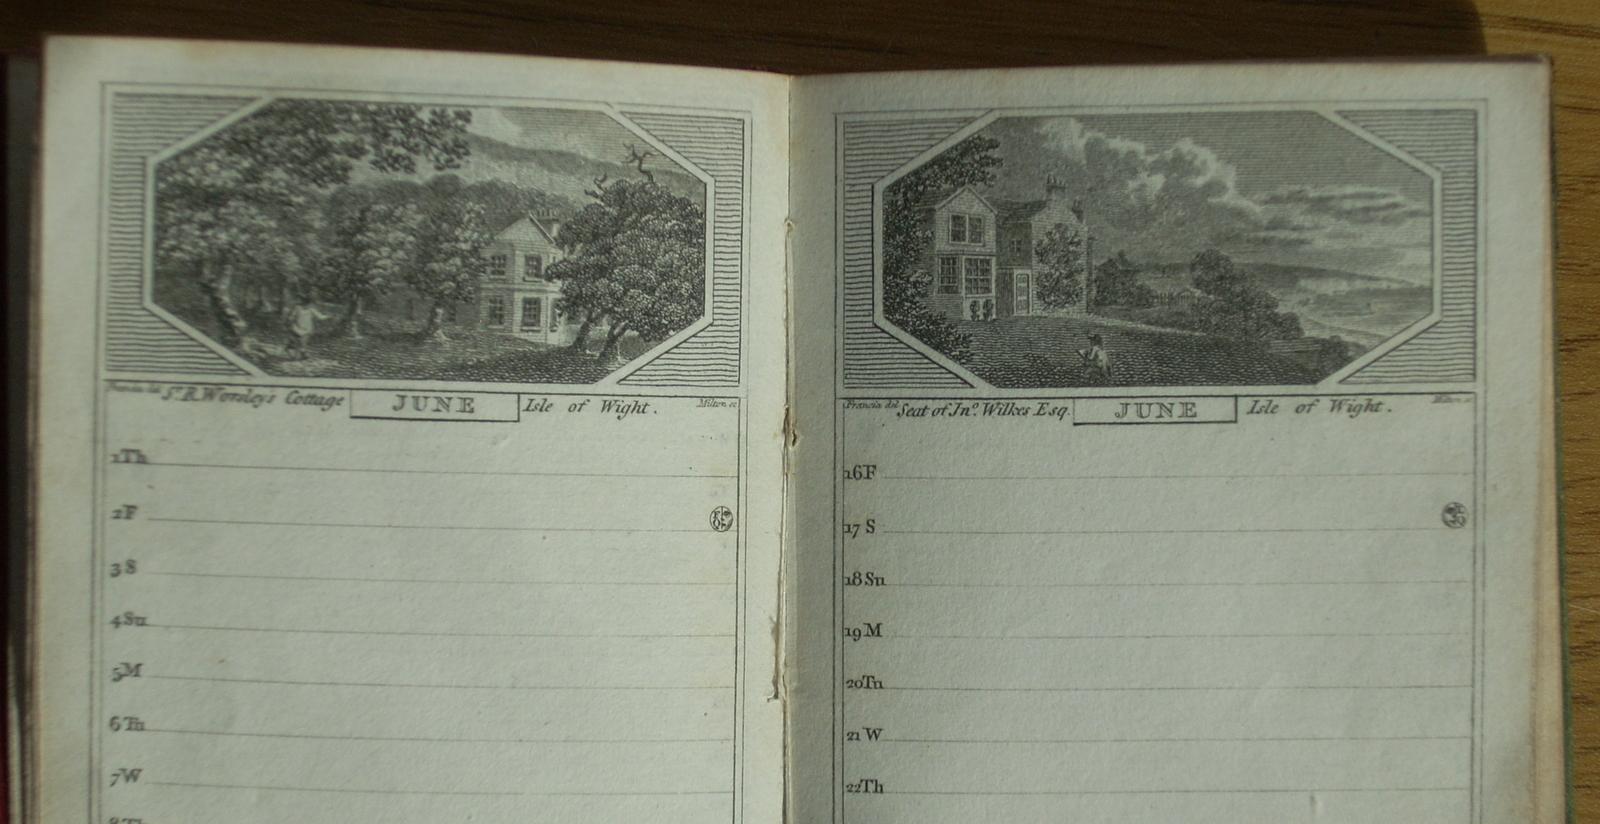 Francia del. Sr. R. Worsley's Cottage JUNE Isle of Wight. Milton sc
1Th
2F
3S
4Su
5M
6Tu
7W
Francia del. Seat of Jno. Wilkes Esq. JUNE Isle of Wight. Milton sc
16F
17 S
18Su
19M
20Tu
21W
22Th